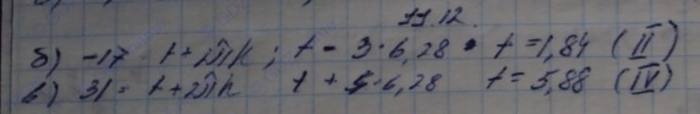 11.12.
б) -17 t+2πk; t - 3·6,28 t=1,84 (II)
в) 31= t+2πk t + 5·6,28 t=5,88 (IV)